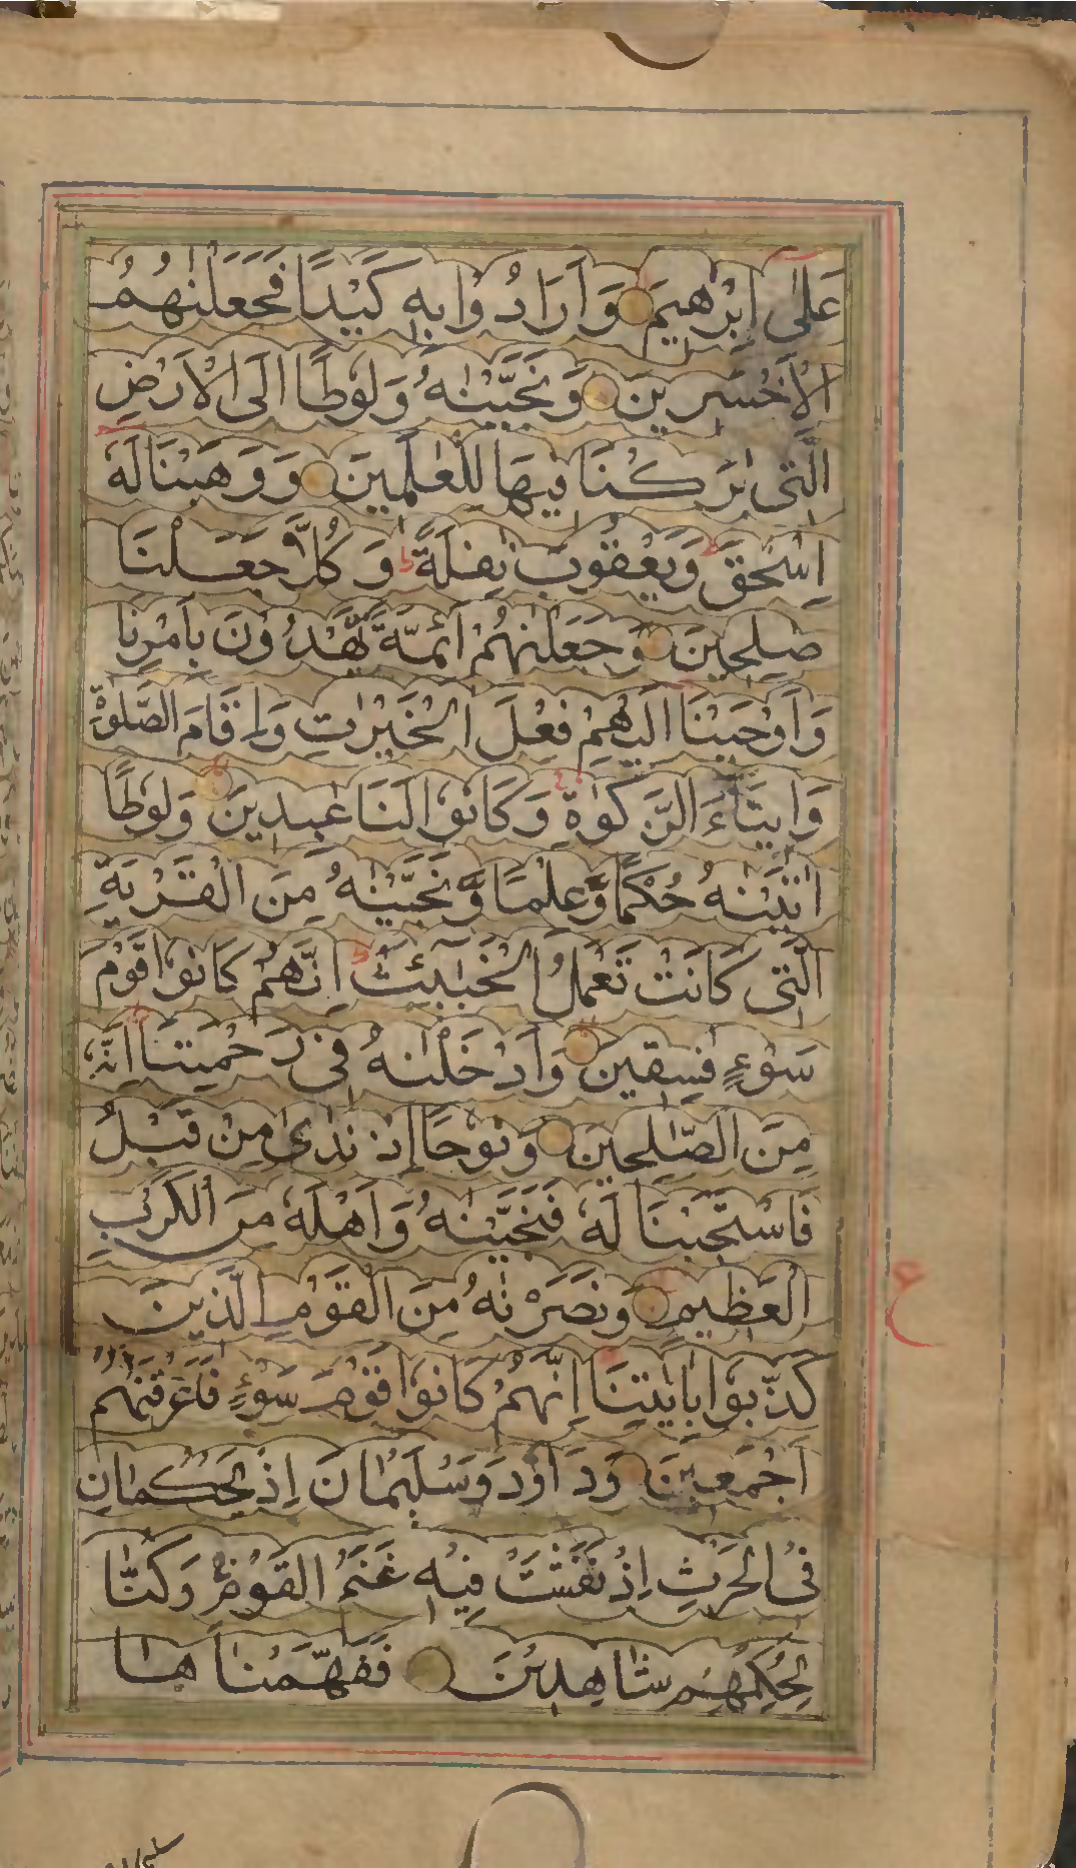 عَلٰى اِبْرٰهِيمَ وَاَرَادُوا بِهٖ كَيْدًا فَجَعَلْنٰهُمُ
الْاَخْسَرِينَ وَنَجَّيْنٰهُ وَلُوطًا اِلَى الْاَرْضِ
الَّتِى بٰرَكْنَا فِيهَا لِلْعٰلَمِينَ وَوَهَبْنَا لَهٗ
اِسْحٰقَ وَيَعْقُوبَ نَافِلَةً وَكُلًّا جَعَلْنَا
صٰلِحِينَ وَجَعَلْنٰهُمْ اَئِمَّةً يَّهْدُونَ بِاَمْرِنَا
وَاَوْحَيْنَا اِلَيْهِمْ فِعْلَ الْخَيْرٰتِ وَاِقَامَ الصَّلٰوةِ
وَاِيتَآءَ الزَّكٰوةِ وَكَانُوا لَنَا عٰبِدِينَ وَلُوطًا
اٰتَيْنٰهُ حُكْمًا وَّعِلْمًا وَّنَجَّيْنٰهُ مِنَ الْقَرْيَةِ
الَّتِى كَانَتْ تَعْمَلُ الْخَبٰٓئِثَ اِنَّهُمْ كَانُوا قَوْمَ
سَوْءٍ فٰسِقِينَ وَاَدْخَلْنٰهُ فِى رَحْمَتِنَا اِنَّهٗ
مِنَ الصّٰلِحِينَ وَنُوحًا اِذْ نَادٰى مِنْ قَبْلُ
فَاسْتَجَبْنَا لَهٗ فَنَجَّيْنٰهُ وَاَهْلَهٗ مِنَ الْكَرْبِ
الْعَظِيمِ وَنَصَرْنٰهُ مِنَ الْقَوْمِ الَّذِينَ
كَذَّبُوا بِاٰيٰتِنَا اِنَّهُمْ كَانُوا قَوْمَ سَوْءٍ فَاَغْرَقْنٰهُمْ
اَجْمَعِينَ وَدَاوٗدَ وَسُلَيْمَانَ اِذْ يَحْكُمَانِ
فِى الْحَرْثِ اِذْ نَفَشَتْ فِيهِ غَنَمُ الْقَوْمِ وَكُنَّا
لِحُكْمِهِمْ شَاهِدِينَ فَفَهَّمْنَاهَا
ع